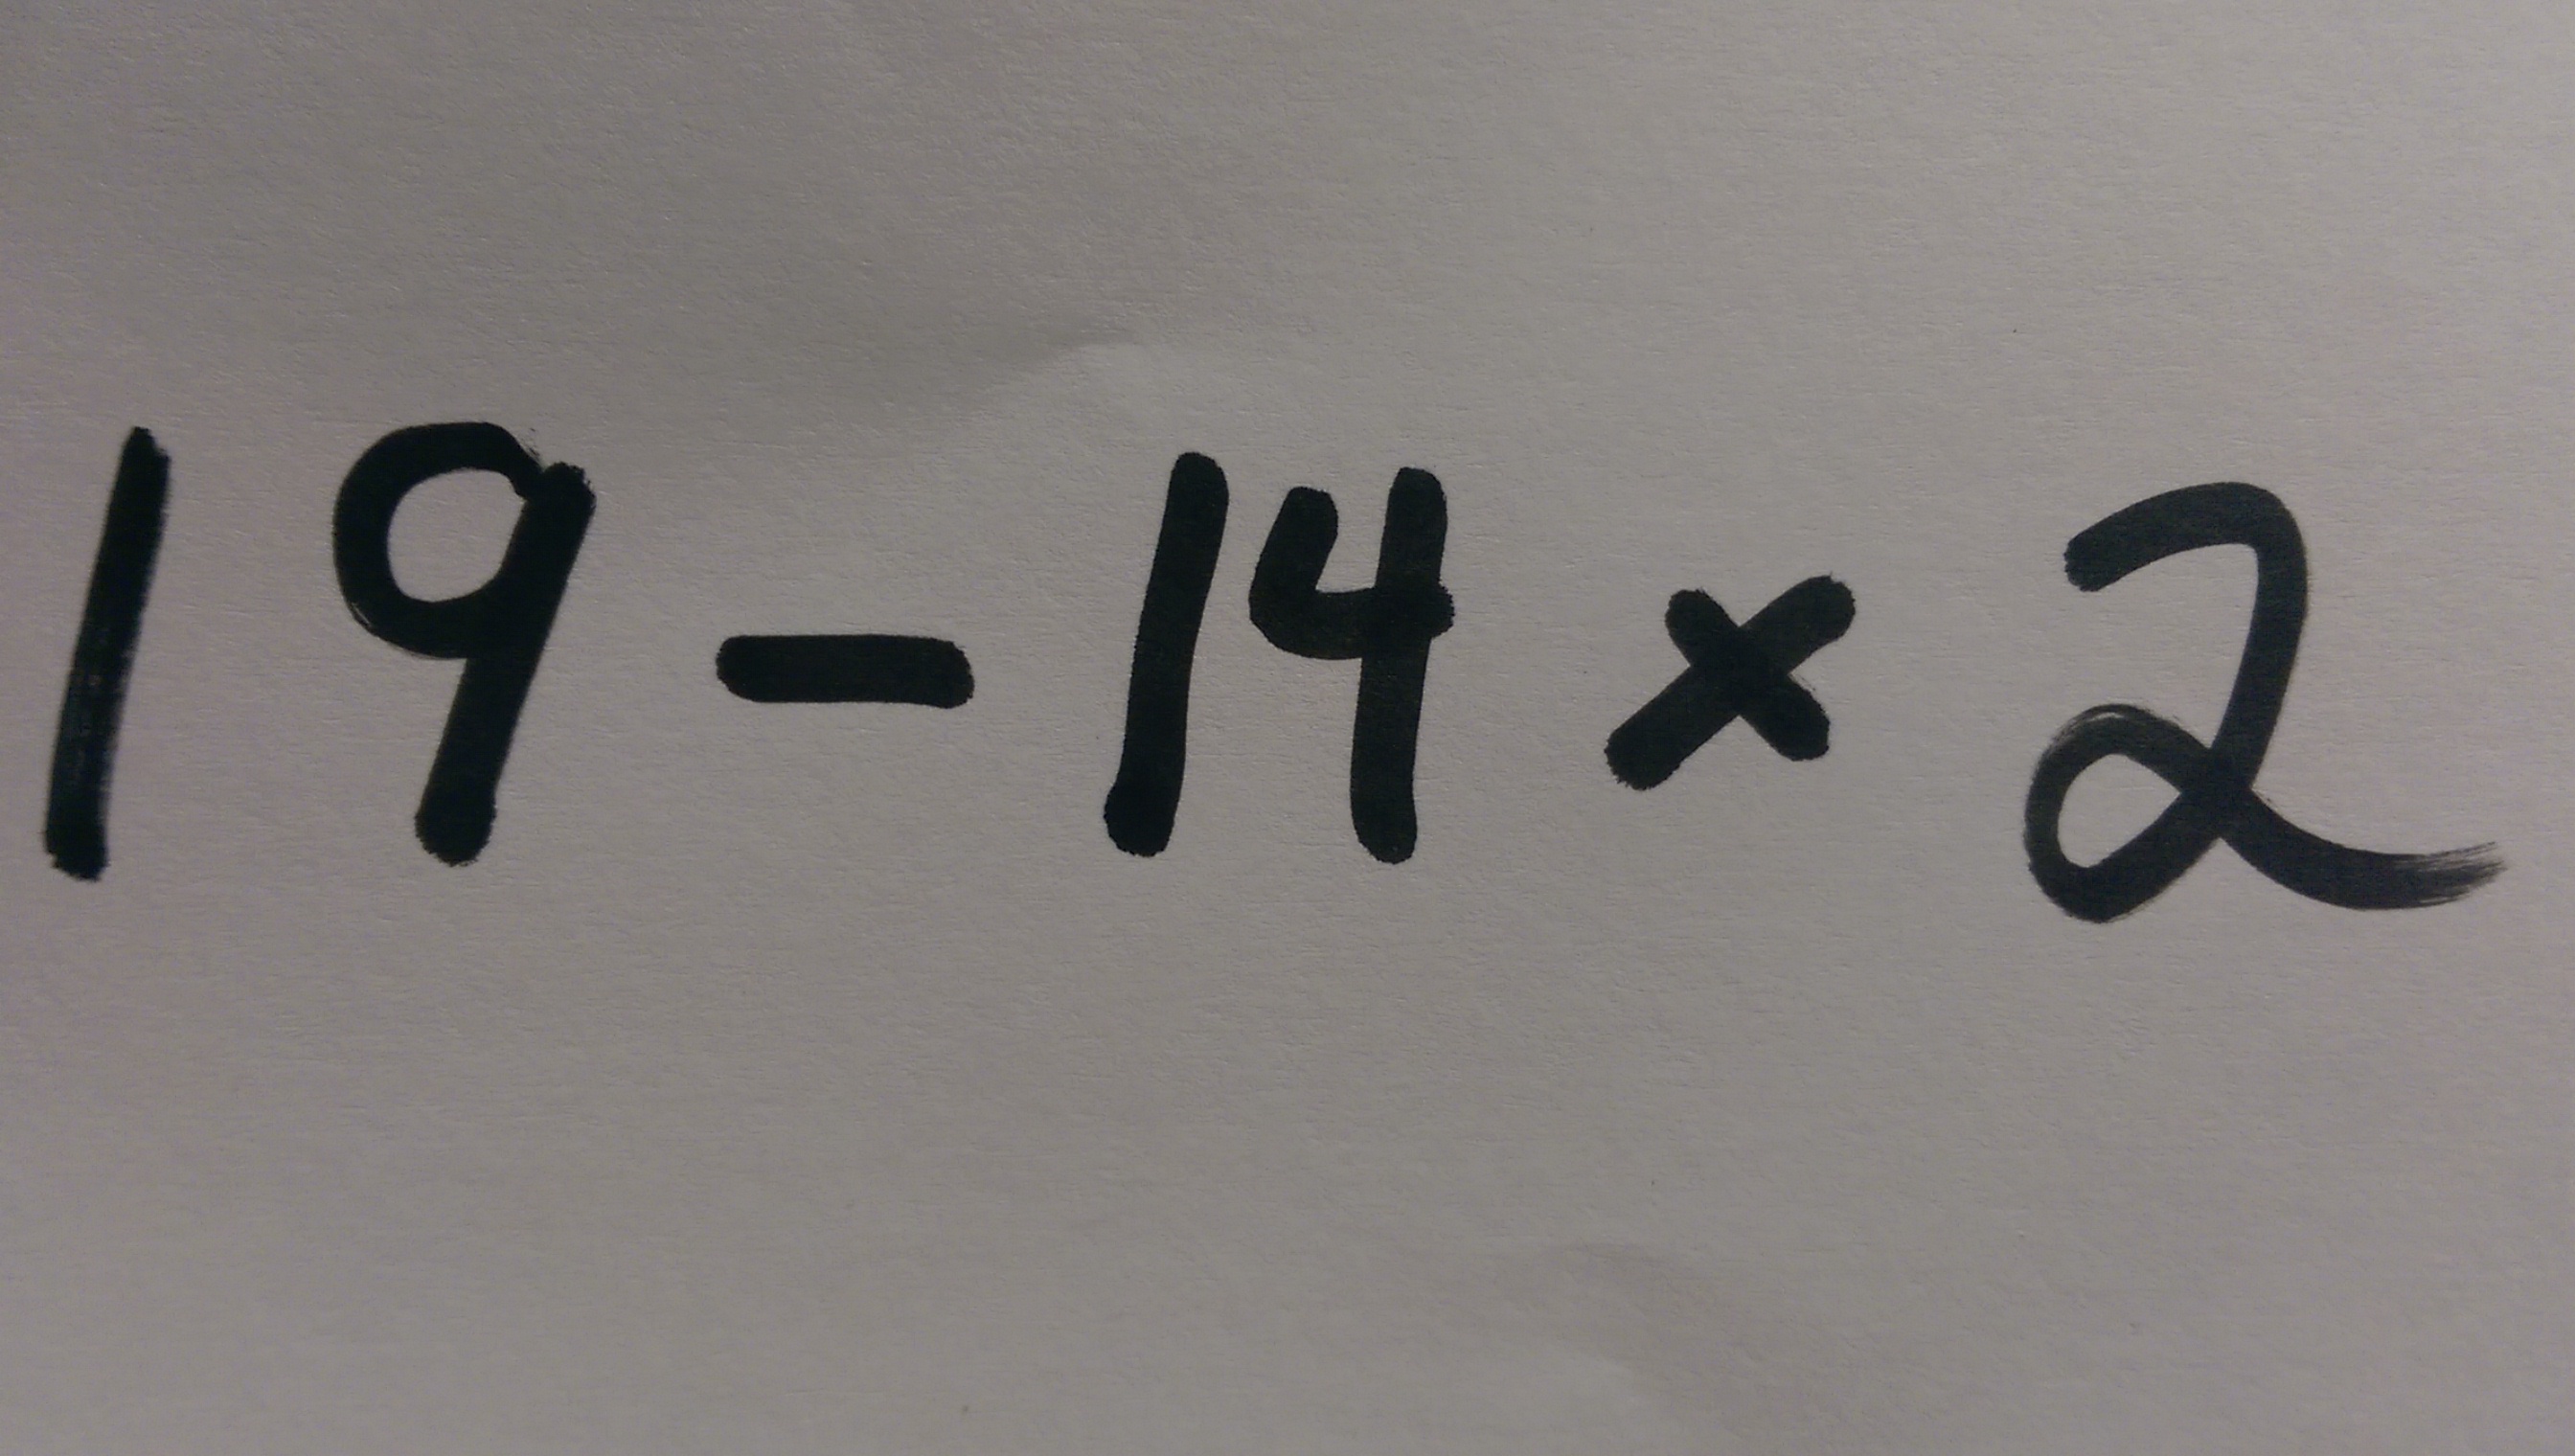 19 - 14 × 2